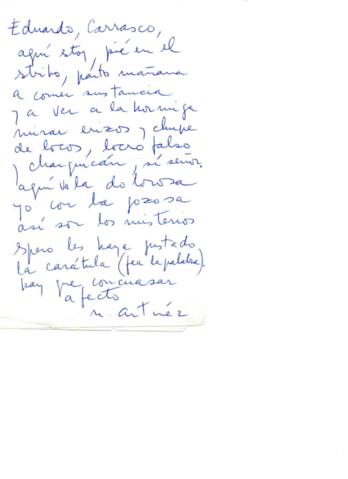 Eduardo, Carrasco,
aquí stoy, pié en el
stribo, párto mañana
a comer sustancia
y a ver a la hormiga
mirar erizos y chupe
de locos, locro falso
y charquicán, sí señor.
aquí va la dolorosa
yo con la gozosa
así son los misterios
spero les haya gustado
la carátula (fea la palabra).
hay que
afecto
n. antúnez